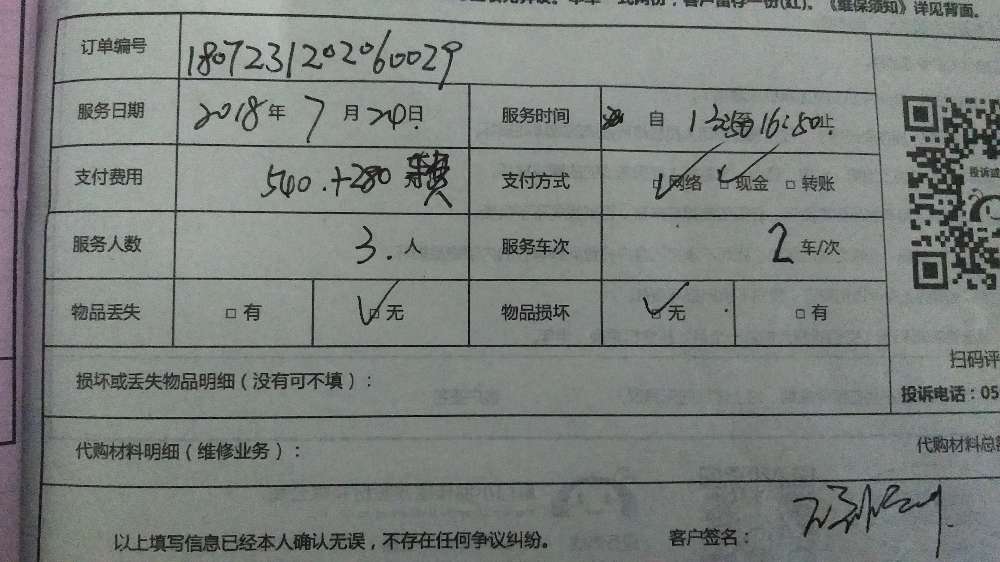 《维保须知》详见背面。
订单编号 1807231202060029
服务日期 2018年 7 月 24日 服务时间 自 16:50止
支付费用 540.+280 支付方式 ☑网络 ☑现金 □转账
服务人数 3.人 服务车次 2 车/次
物品丢失 □有 ☑无 物品损坏 ☑无 □有
投诉或
扫码评
损坏或丢失物品明细(没有可不填): 投诉电话:05
代购材料明细(维修业务): 代购材料总
以上填写信息已经本人确认无误,不存在任何争议纠纷。 客户签名: